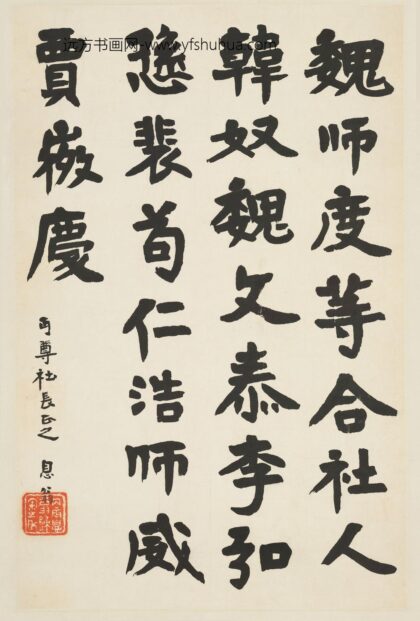 远方书画网-www.yfshuhua.com
魏师度等合社人
韓奴魏文泰李弘
裴苟仁浩师威
賈慶
丏尊社長正之 息翁